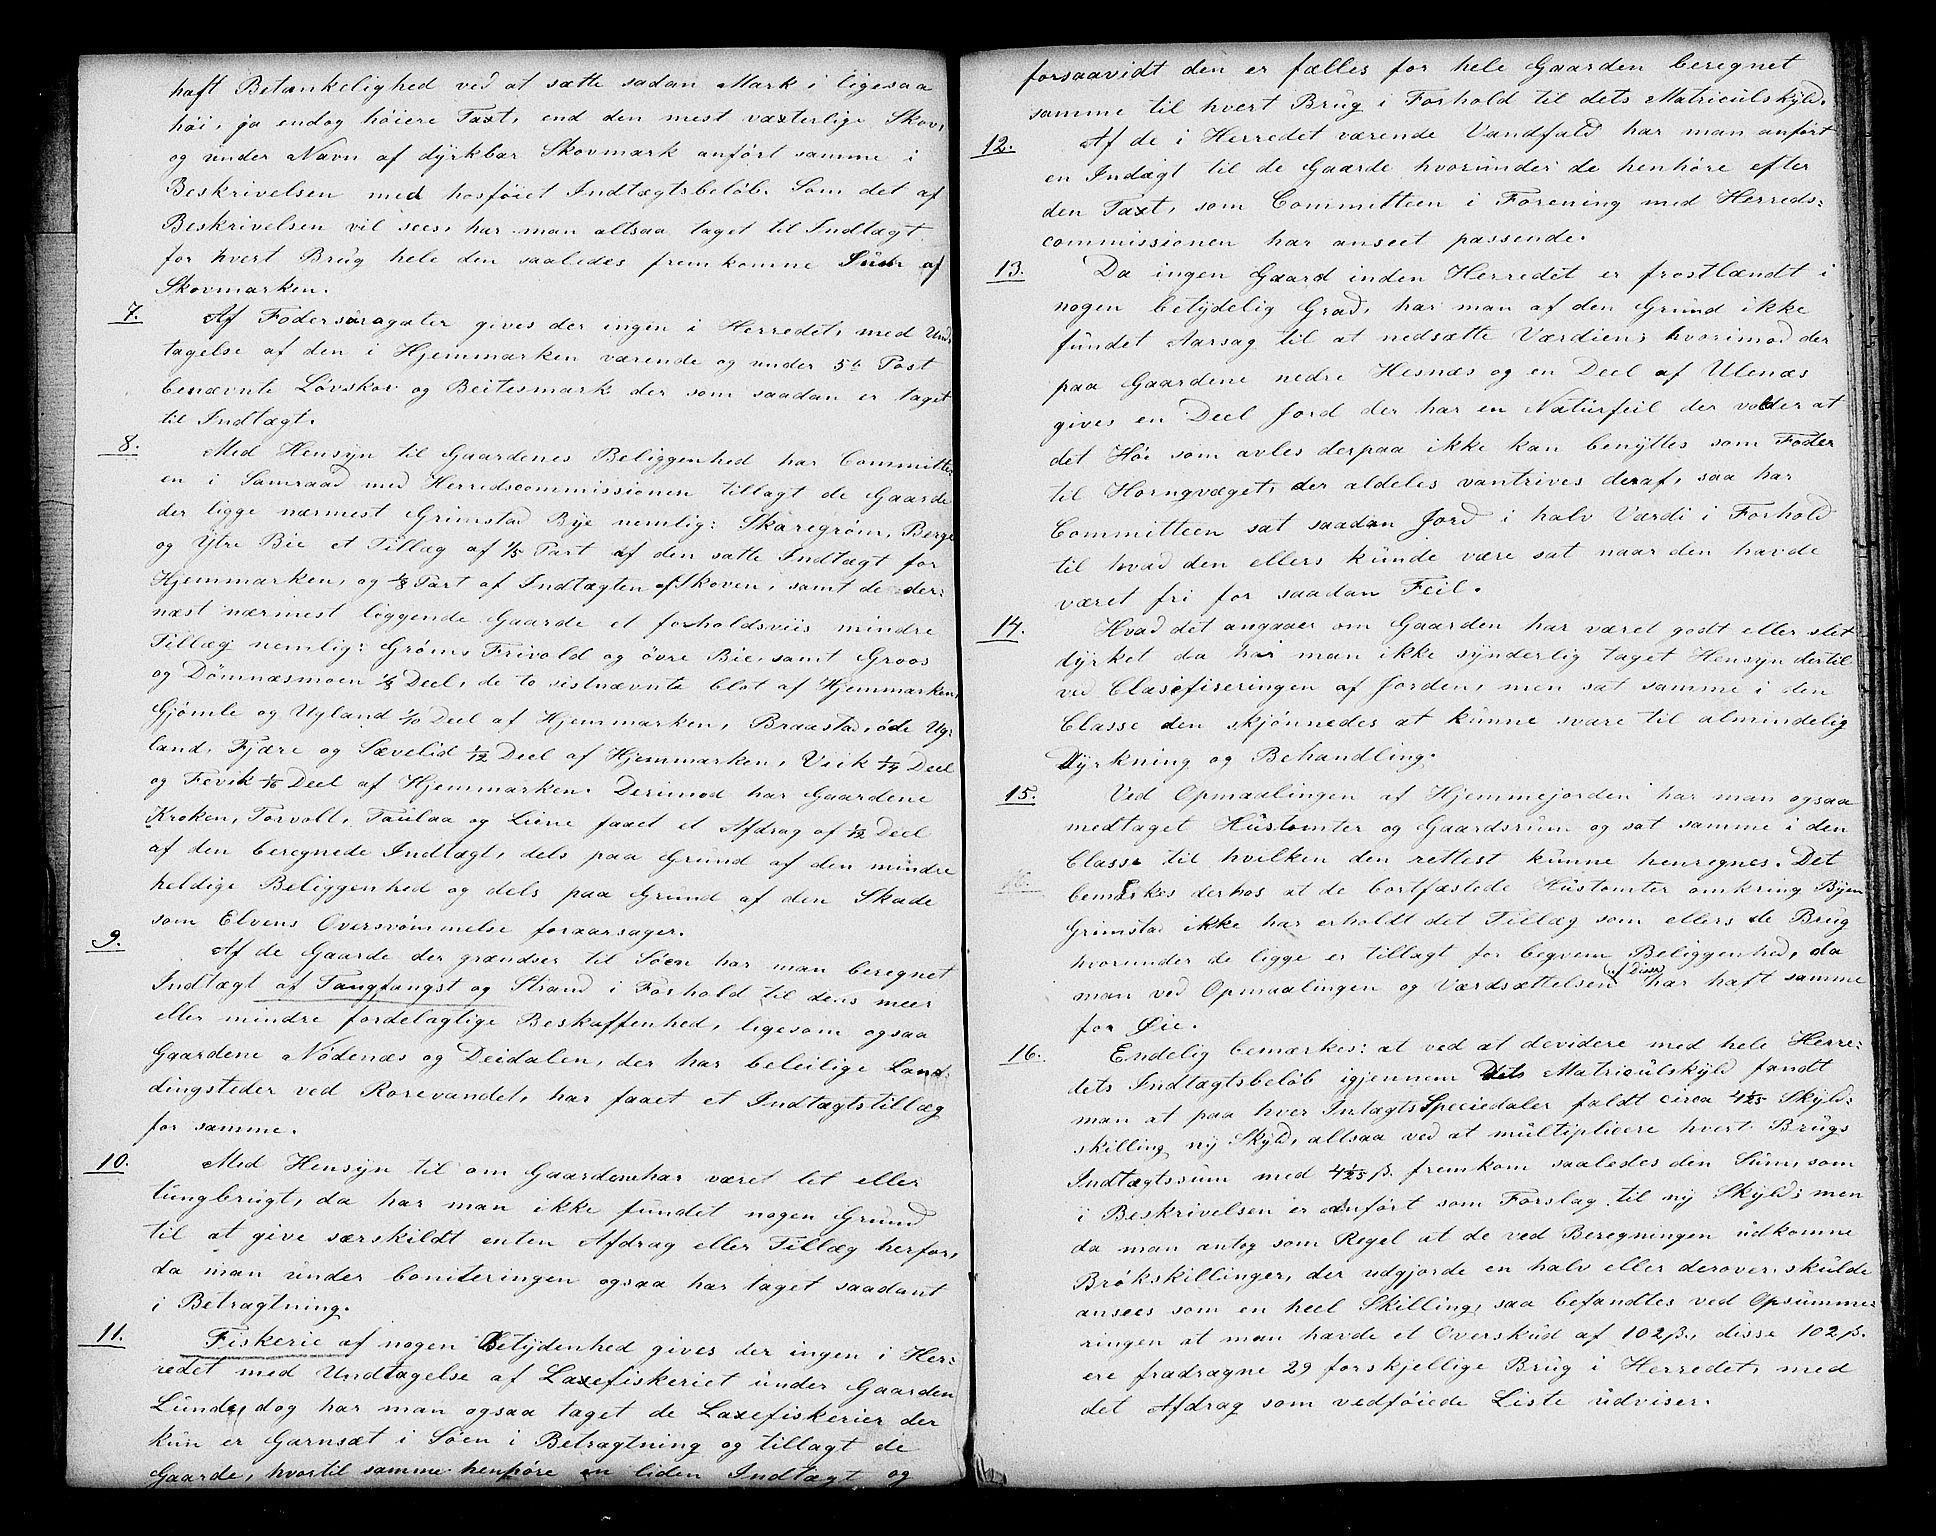 haft Betænkelighed ved at sætte sadan Mark i ligesaa
høi, ja endog høiere Taxt, end den mest væxterlige Skov,
og under Navn af dyrkbar Skovmark anført samme i
Beskrivelsen med hosføiet Indtægtsbeløb. Som det af
Beskrivelsen vil sees, har man altsaa taget til Indtægt
for hvert Brug hele den saaledes fremkomne Sum af
Skovmarken.
7. Af Fodersurogater gives der ingen i Herredet, med Und-
tagelse af den i Hjemmarken værende og under 5te Post
benævnte Løvskov og Beitesmark der som saadan er taget
til Indtægt.
8. Med Hensyn til Gaardenes Beliggenhed har Committe-
en i Samraad med Herredscommissionen tillagt de Gaarde
der ligge nærmest Grimstad Bye nemlig: Skaregrøm, Berge
og Ytre Bie et Tillæg af 1/5 Part af den satte Indtægt for
Hjemmarken, og 1/8 Part af Indtægten af Skoven, samt de der-
næst nærmest liggende Gaarde et forholdsviis mindre
Tillæg nemlig: Grøms Frivold og øvre Bie samt Groos
og Dømnæsmoen 1/8 Deel, de to sistnævnte blot af Hjemmarken,
Gjømle og Ugland 1/10 Deel af Hjemmarken, Braastad, øde Ug-
land, Fjære og Sævelid 1/12 Deel af Hjemmarken, Viik 1/14 Deel
og Fevik 1/16 Deel af Hjemmarken. Derimod har Gaardene
Kroken, Torvolt, Taulaa og Liene faaet et Afdrag af 1/12 Deel
af den beregnede Indtægt, dels paa Grund af den mindre
heldige Beliggenhed og dels paa Grund af den Skade
som Elvens Oversvømmelse foraarsager.
9. Af de Gaarde der grændser til Søen har man beregnet
Indtægt af Tangfangst og Strand i Forhold til dens meer
eller mindre fordelagtige Beskaffenhed, ligesom ogsaa
Gaardene Nødenæs og Deidalen, der har beleilige Lan-
dingsteder ved Rorevandet, har faaet et Indtægtstillæg
for samme.
10. Med Hensyn til om Gaarden har været let eller
tungbrugt, da har man ikke fundet nogen Grund
til at give særskildt enten Afdrag eller Tillæg herfor,
da man under boniteringen ogsaa har taget saadant
i Betragtning.
11. Fiskerie af nogen Betydenhed gives der ingen i Her-
redet med Undtagelse af Laxefiskeriet under Gaarden
Lunde, dog har man ogsaa taget de Laxefiskerier der
kun er Garnsæt i Søen i Betragtning og tillagt de
Gaarde, hvortil samme henhøre en liden Indtægt og
forsaavidt den er fælles for hele Gaarden beregnet
samme til hvert Brug i Forhold til dets Matriculskyld.
12. Af de i Herredet værende Vandfald har man anført
en Indægt til de Gaarde hvorunder de henhøre efter
den Taxt, som Committeen i Forening med Herreds-
commissionen har anseet passende.
13. Da ingen Gaard inden Herredet er frostlændt i
nogen betydelig Grad, har man af den Grund ikke
fundet Aarsag til at nedsætte Værdien; hvorimod der
paa Gaardene nedre Hesnæs og en Deel af Ulenæs
gives en Deel Jord der har en Naturfeil der volder at
det Høe som avles derpaa ikke kan benyttes som Foder
til Hornqvæget, der aldeles vantrives deraf, saa har
Committeen sat saadan Jord i halv Værdi i Forhold
til hvad den ellers kunde være sat naar den havde
været fri for saadan Feil.
14. Hvad det angaaer om Gaarden har været godt eller slet
dyrket da har man ikke synderlig taget Hensyn dertil
ved Clasefiseringen af Jorden, men sat samme i den
Classe den skjønnedes at kunne svare til almindelig
Dyrkning og Behandling.
15. Ved Opmaalingen af Hjemmejorden har man ogsaa
medtaget Hustomter og Gaardsrum og sat samme i den
Classe til hvilken den rettest kunne henregnes. Det
16. bemærkes derhos at de bortfæstede Hustomter omkring Byen
Grimstad ikke har erholdt det Tillæg som ellers de Brug
hvorunder de ligge er tillagt for beqvem Beliggenhed, da
man ved Opmaalingen og Værdsættelsen (af Disse) har haft samme
for Øie.
16. Endelig bemærkes: at ved at devidere med hele Herre-
dets Indtægtsbeløb igjennem dets Matriculskyld fandt
man at paa hver Intægts Speciedaler faldt circa 4 1/25 Skyld-
skilling ny Skyld, altsaa ved at multiplicere hvert Brugs
Indtægtssum med 4 1/25 ß. fremkom saaledes den Sum, som
i Beskrivelsen er anført som Forslag til ny Skyld; men
da man antog som Regel at de ved Beregningen udkomne
Brøkskillinger, der udgjorde en halv eller derover, skulde
ansees som en heel Skilling, saa befandtes ved Opsumme-
ringen at man havde et Overskud af 102 ß., disse 102 ß.
ere fradragne 29 forskjellige Brug i Herredet, med
det Afdrag som vedføiede Liste udviser.